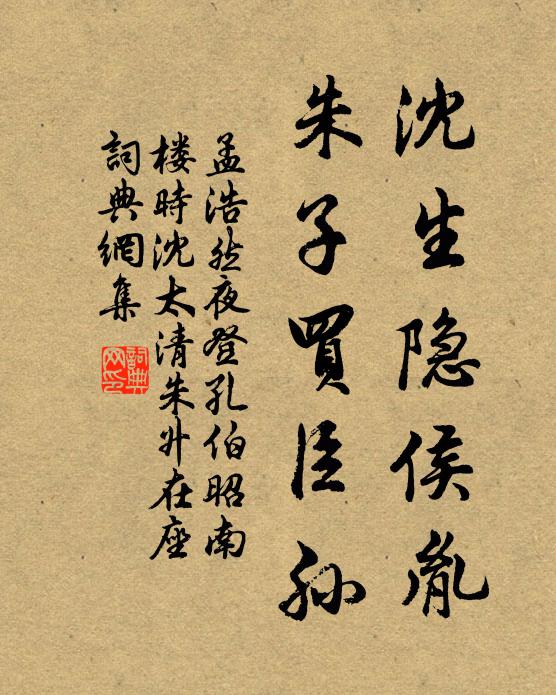 沈生隐侯胤
朱子買臣孙
孟浩然夜登孔伯昭南
楼時沈太清朱升在座
詞典網集
詞典网印